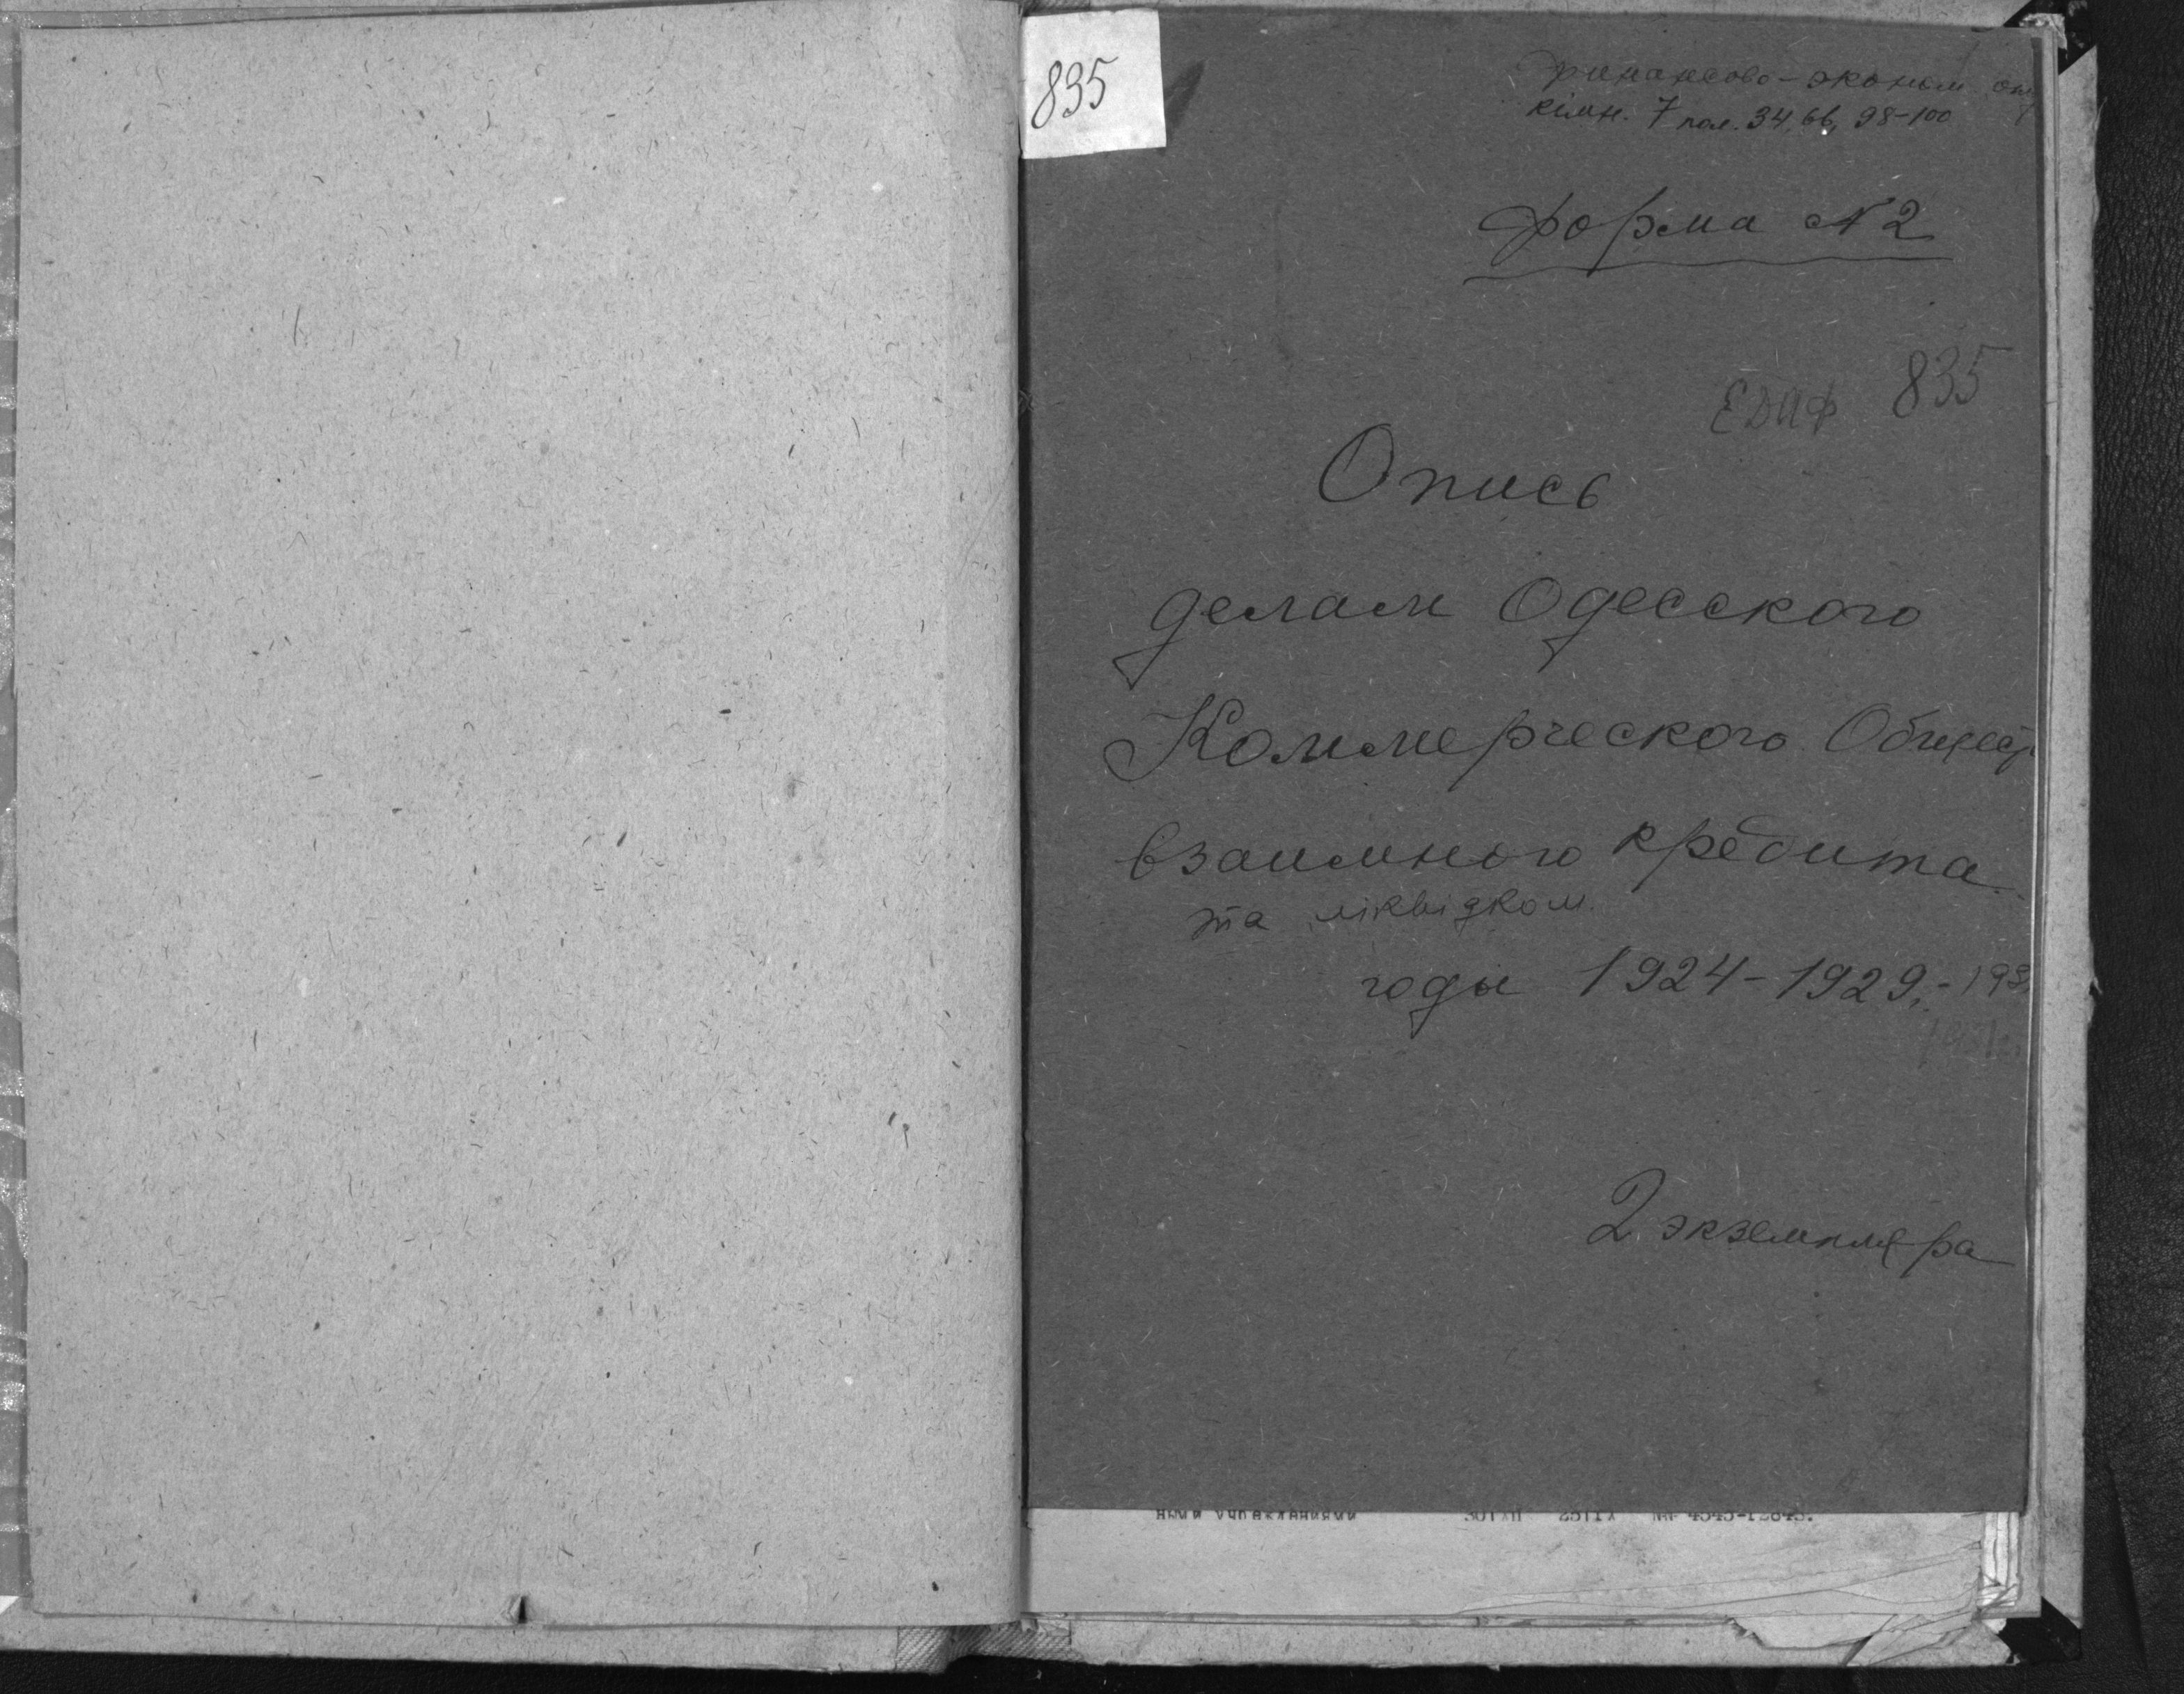 835
финансово-эконом отд
кімн. 7 пол. 34, 66, 98-100
Форма №2
835
Опись
делам Одесского
Коммерческого Общест
взаимного кредита
та ліквідком.
годы 1924-1929,-193
2 экземпляра
ными учреждениями